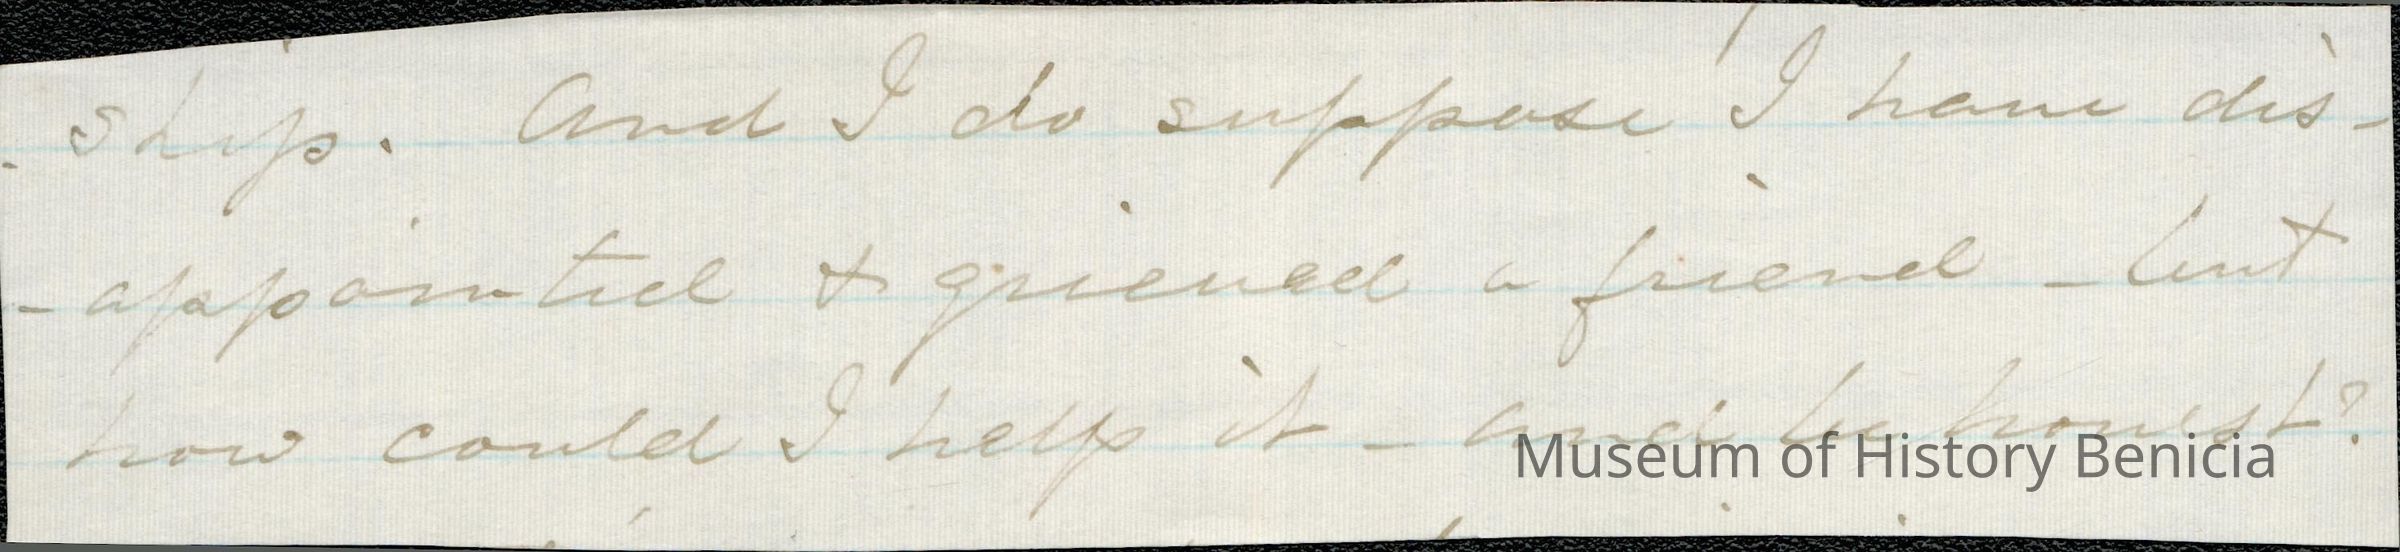 - ship. And I do suppose I have dis-
- appointed & grieved a friend - but
how could I help it - and be honest?
Museum of History Benicia